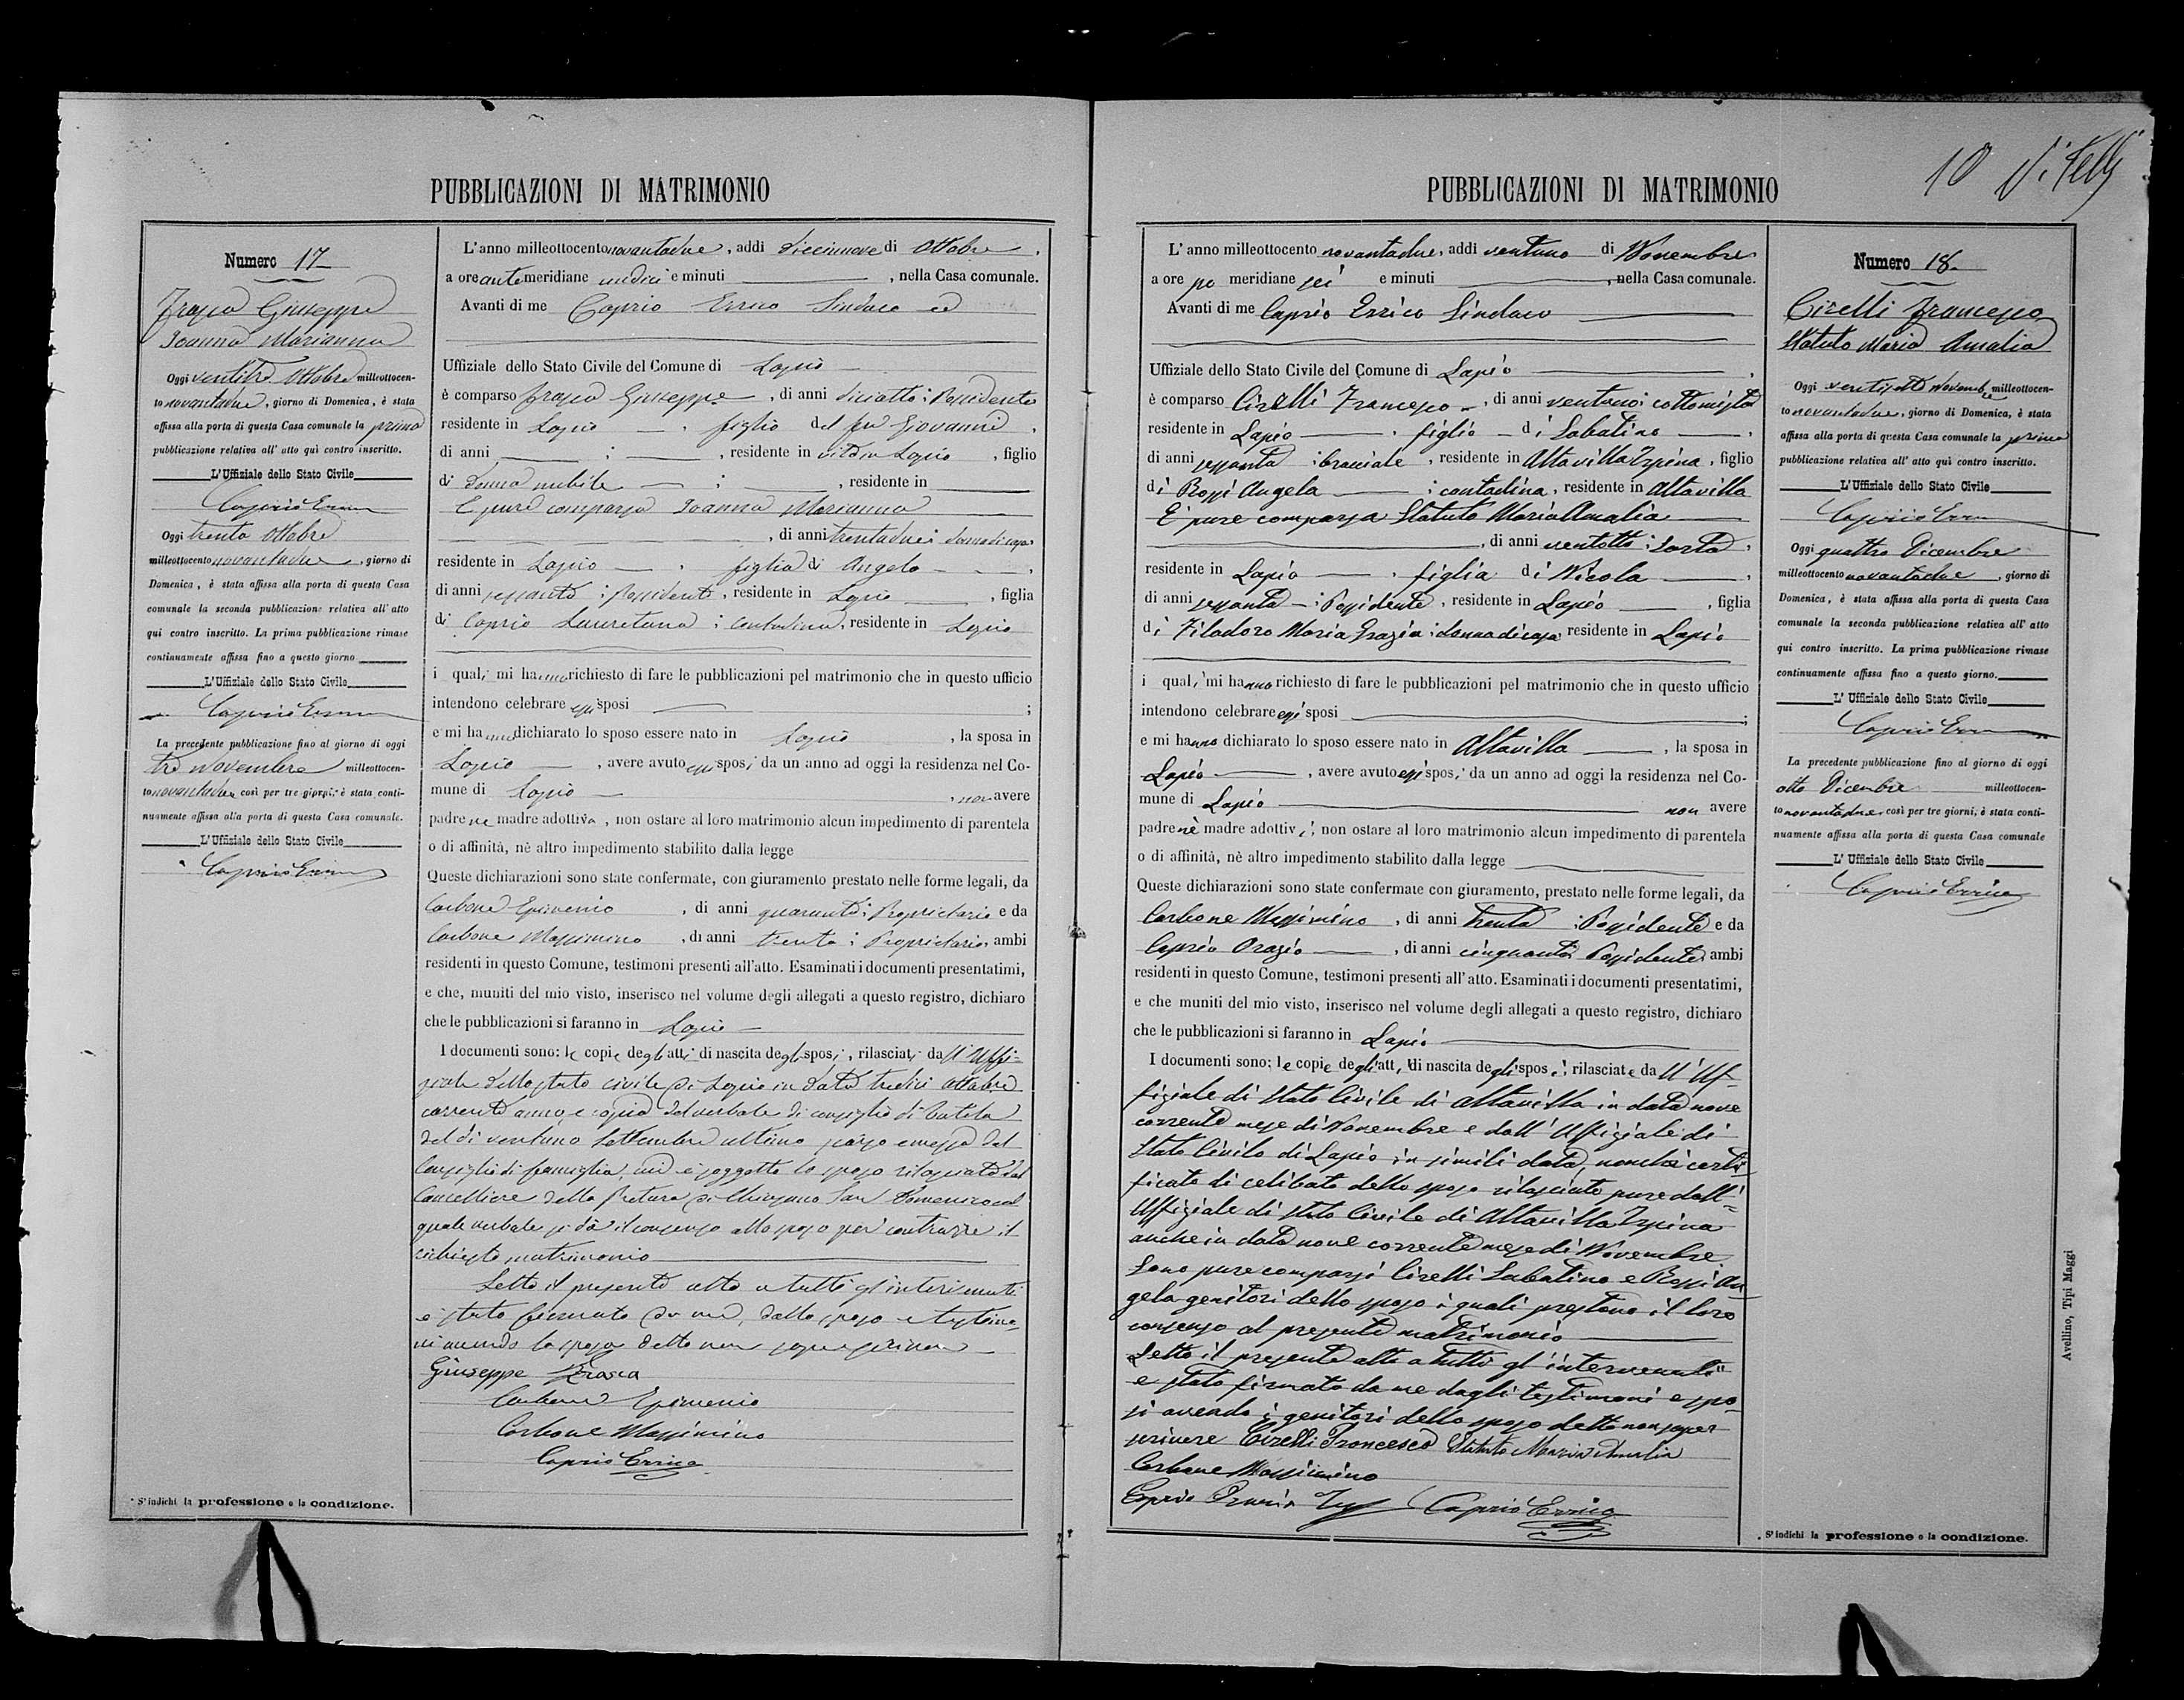 PUBBLICAZIONI DI MATRIMONIO
Numero 17
Frasca Giuseppe
Joanna Marianna
Oggi ventitre Ottobre milleottocen-
to novantadue, giorno di Domenica, è stata
affissa alla porta di questa Casa comunale la prima
pubblicazione relativa all' atto quì contro inscritto.
L'Uffiziale dello Stato Civile
Caprio Errico
Oggi trenta Ottobre
milleottocento novantadue, giorno di
Domenica, è stata affissa alla porta di questa Casa
comunale la seconda pubblicazione relativa all' atto
qui contro inscritto. La prima pubblicazione rimase
continuamente affissa fino a questo giorno
L'Uffiziale dello Stato Civile
Caprio Errico
La precedente pubblicazione fino al giorno di oggi
tre Novembre milleottocen-
to novantadue così per tre giorni, è stata conti-
nuamente affissa alla porta di questa Casa comunale.
L'Uffiziale dello Stato Civile
Caprio Errico
* S' indichi la professione o la condizione.
L'anno milleottocento novantadue, addì diecinnove di Ottobre,
a ore ante meridiane undici e minuti , nella Casa comunale.
Avanti di me Caprio Errico Sindaco ed
Uffiziale dello Stato Civile del Comune di Lapio
è comparso Frasca Giuseppe, di anni diciotto; Possidente
residente in Lapio, figlio del fu Giovanni,
di anni ; , residente in vita in Lapio, figlio
di donna nubile ; , residente in
E pure comparsa Joanna Marianna
, di anni trentadue; donna di casa
residente in Lapio, figlia di Angelo,
di anni sessanta; possidente, residente in Lapio, figlia
di Caprio Lauretana; contadina, residente in Lapio
i quali mi hanno richiesto di fare le pubblicazioni pel matrimonio che in questo ufficio
intendono celebrare essi sposi ;
e mi hanno dichiarato lo sposo essere nato in Lapio, la sposa in
Lapio, avere avuto essi sposi da un anno ad oggi la residenza nel Co-
mune di Lapio, non avere
padre ne madre adottiva, non ostare al loro matrimonio alcun impedimento di parentela
o di affinità, nè altro impedimento stabilito dalla legge
Queste dichiarazioni sono state confermate, con giuramento prestato nelle forme legali, da
Carbone Epimenio, di anni quaranta; Proprietario e da
Carbone Massimino, di anni trenta; Proprietario, ambi
residenti in questo Comune, testimoni presenti all'atto. Esaminati i documenti presentatimi,
e che, muniti del mio visto, inserisco nel volume degli allegati a questo registro, dichiaro
che le pubblicazioni si faranno in Lapio
I documenti sono: le copie degli atti di nascita degli sposi, rilasciati dall'Uffi-
ziale dello stato civile di Lapio in data tredici Ottobre
corrente anno, e copia del verbale di consiglio di tutela
del dì ventuno Settembre ultimo passo emessa dal
Consiglio di famiglia, cui è soggetto lo sposo rilasciata dal
Cancelliere della Pretura di Chiusano San Domenico col
quale verbale si dà il consenso allo sposo per contrarre il
richiesto matrimonio
Letto il presente atto a tutti gl'intervenuti
è stato firmato da me, dallo sposo e testimo-
ni avendo la sposa detto non saper scrivere
Giuseppe Frasca
Carbone Epimenio
Carbone Massimino
Caprio Errico
10
PUBBLICAZIONI DI MATRIMONIO
L' anno milleottocento novantadue, addì ventuno di Novembre
a ore po meridiane sei e minuti , nella Casa comunale.
Avanti di me Caprio Errico Sindaco
Uffiziale dello Stato Civile del Comune di Lapio,
è comparso Cirelli Francesco, di anni ventuno; cottomista
residente in Lapio, figlio di Sabatino,
di anni sessanta; bracciale, residente in Altavilla Irpina, figlio
di Rossi Angela; contadina, residente in Altavilla
E' pure comparsa Statuto Maria Amalia
, di anni ventotto; sarta,
residente in Lapio, figlia di Nicola,
di anni sessanta; Possidente, residente in Lapio, figlia
di Filadoro Maria Grazia; donna di casa residente in Lapio
i quali mi hanno richiesto di fare le pubblicazioni pel matrimonio che in questo ufficio
intendono celebrare essi sposi ;
e mi hanno dichiarato lo sposo essere nato in Altavilla, la sposa in
Lapio, avere avuto essi sposi da un anno ad oggi la residenza nel Co-
mune di Lapio non avere
padre nè madre adottivi, non ostare al loro matrimonio alcun impedimento di parentela
o di affinità, nè altro impedimento stabilito dalla legge
Queste dichiarazioni sono state confermate con giuramento, prestato nelle forme legali, da
Carbone Massimino, di anni trenta; Possidente e da
Caprio Orazio, di anni cinquanta Possidente, ambi
residenti in questo Comune, testimoni presenti all' atto. Esaminati i documenti presentatimi,
e che muniti del mio visto, inserisco nel volume degli allegati a questo registro, dichiaro
che le pubblicazioni si faranno in Lapio
I documenti sono; le copie degli atti di nascita degli sposi, rilasciate dall'Uf-
fiziale di Stato Civile di Altavilla in data nove
corrente mese di Novembre e dall'Uffiziale di
Stato Civile di Lapio in simili data, nonchè certi-
ficato di celibato dello sposo rilasciato pure dall'
Uffiziale di Stato Civile di Altavilla Irpina
anche in data nove corrente mese di Novembre.
Sono pure comparsi Cirelli Sabatino e Rossi An-
gela genitori dello sposo i quali prestano il loro
consenso al presente matrimonio
Letto il presente atto a tutti gl'intervenuti
è stato firmato da me dagli testimoni e spo-
si avendo i genitori dello sposo detto non saper
scrivere Cirelli Francesco Statuto Maria Amalia
Carbone Massimino
Caprio Orazio Caprio Errico
Numero 18
Cirelli Francesco
Statuto Maria Amalia
Oggi ventisette Novembre milleottocen-
to novantadue, giorno di Domenica, è stata
affissa alla porta di questa Casa comunale la prima
pubblicazione relativa all' atto quì contro inscritto.
L'Uffiziale dello Stato Civile
Caprio Errico
Oggi quattro Dicembre
milleottocento novantadue, giorno di
Domenica, è stata affissa alla porta di questa Casa
comunale la seconda pubblicazione relativa all' atto
qui contro inscritto. La prima pubblicazione rimase
continuamente affissa fino a questo giorno.
L' Uffiziale dello Stato Civile
Caprio Errico
La precedente pubblicazione fino al giorno di oggi
otto Dicembre milleottocen-
to novantadue, così per tre giorni, è stata conti-
nuamente affissa alla porta di questa Casa comunale
L' Uffiziale dello Stato Civile
Caprio Errico
* S' indichi la professione o la condizione.
Avellino, Tipi Maggi